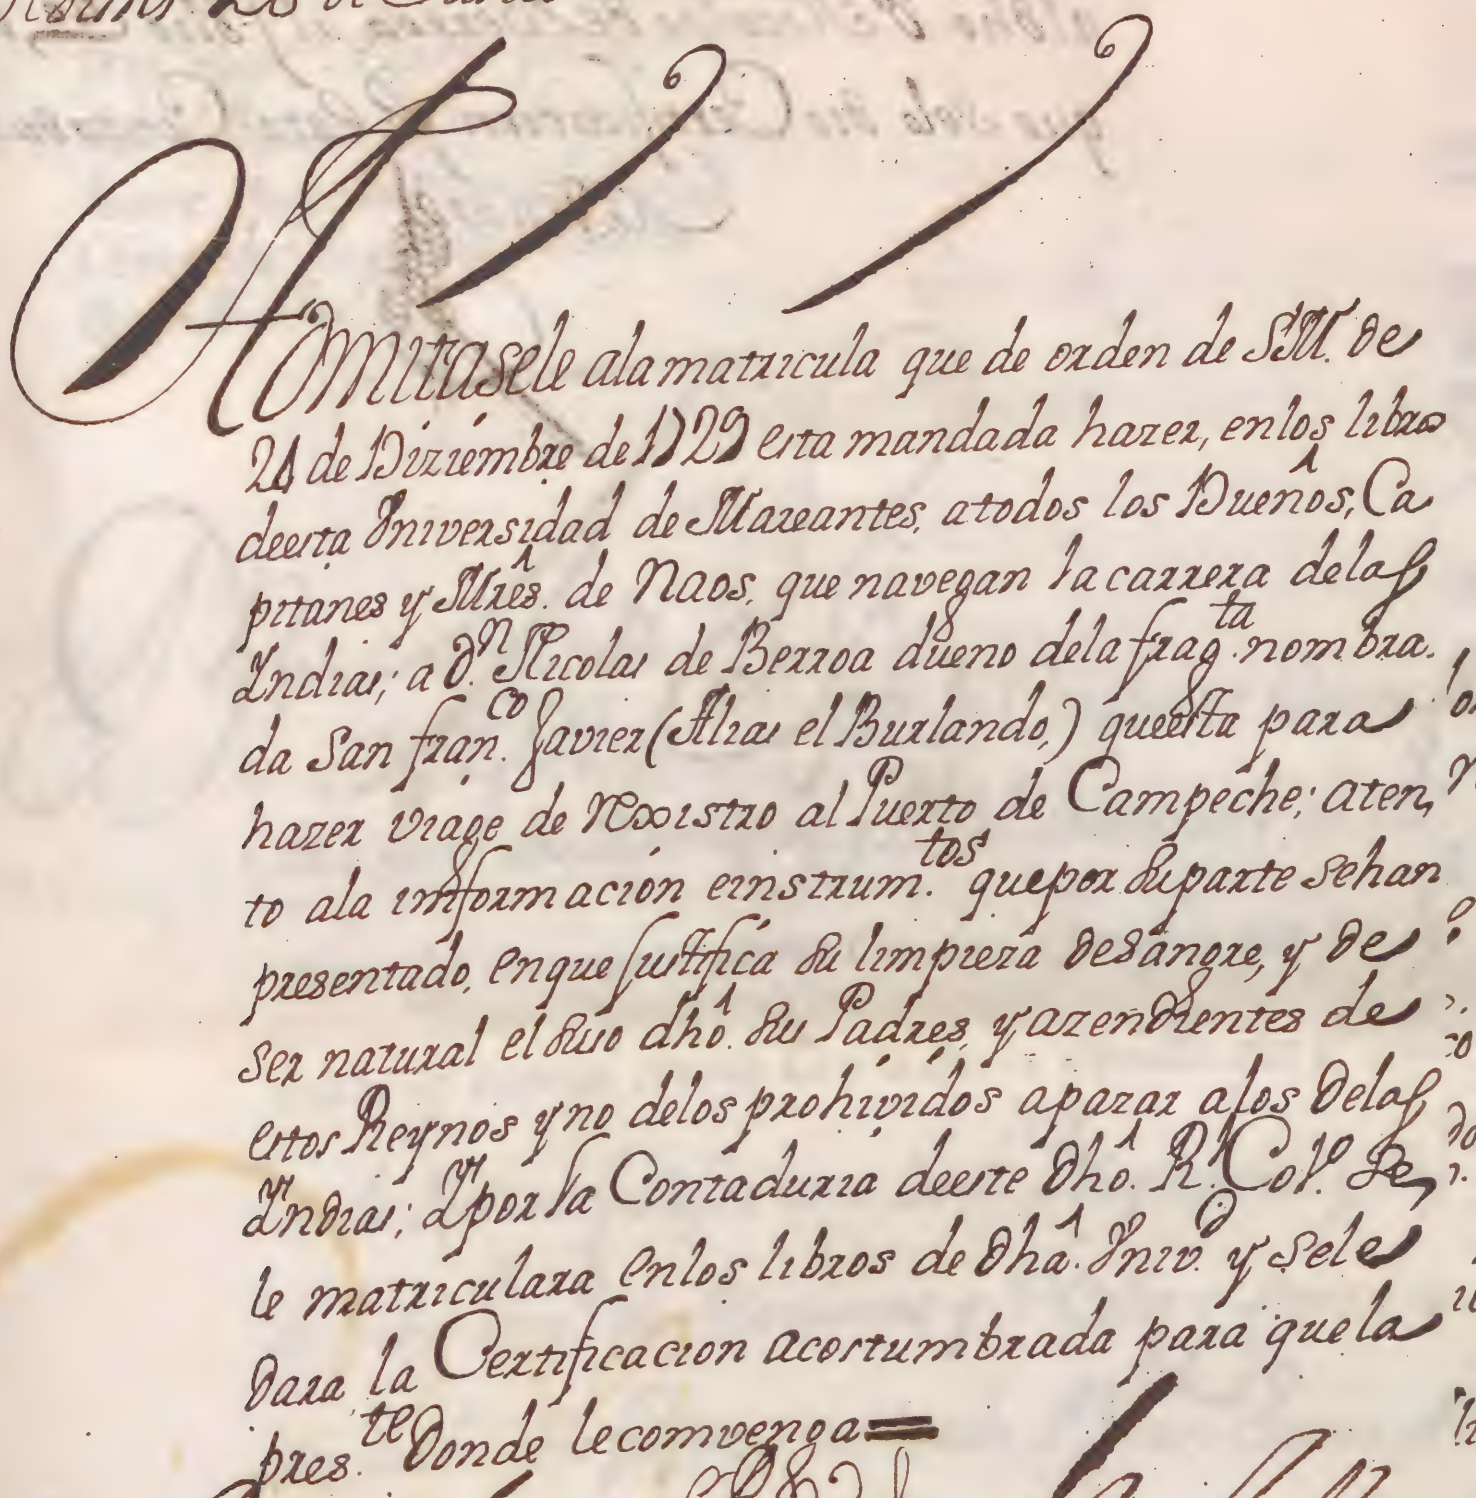 Admitasele ala matricula que de orden de S.M. de
21 de Diziembre de 1729 esta mandada hazer, enlos libros
deesta Vniversidad de Mareantes, atodos los Dueños, Ca
pitanes y Mrês. de Naos, que navegan la carrera delas
Yndias; a D.n Nicolas de Berroa dueno dela frag.ta nombra.
da San fran.co Javier (Alias el Burlando,) queesta para
hazer viage de Rexistro al Puerto de Campeche; aten,
to ala imformacion einstrum.tos quepor suparte sehan
presentado, enque justifica su limpieza desangre, y de
ser natural el suso dhô. su Padres, y azendientes de
estos Reynos y no delos prohividos apazar alos delas
Yndias; Y por la Contaduria deeste dhô. R.l Col.o se,
le matriculara enlos libros de dhâ. Vniv.d y sele
dara la Certificacion acostumbrada para quela
pres.te donde lecomvenga=